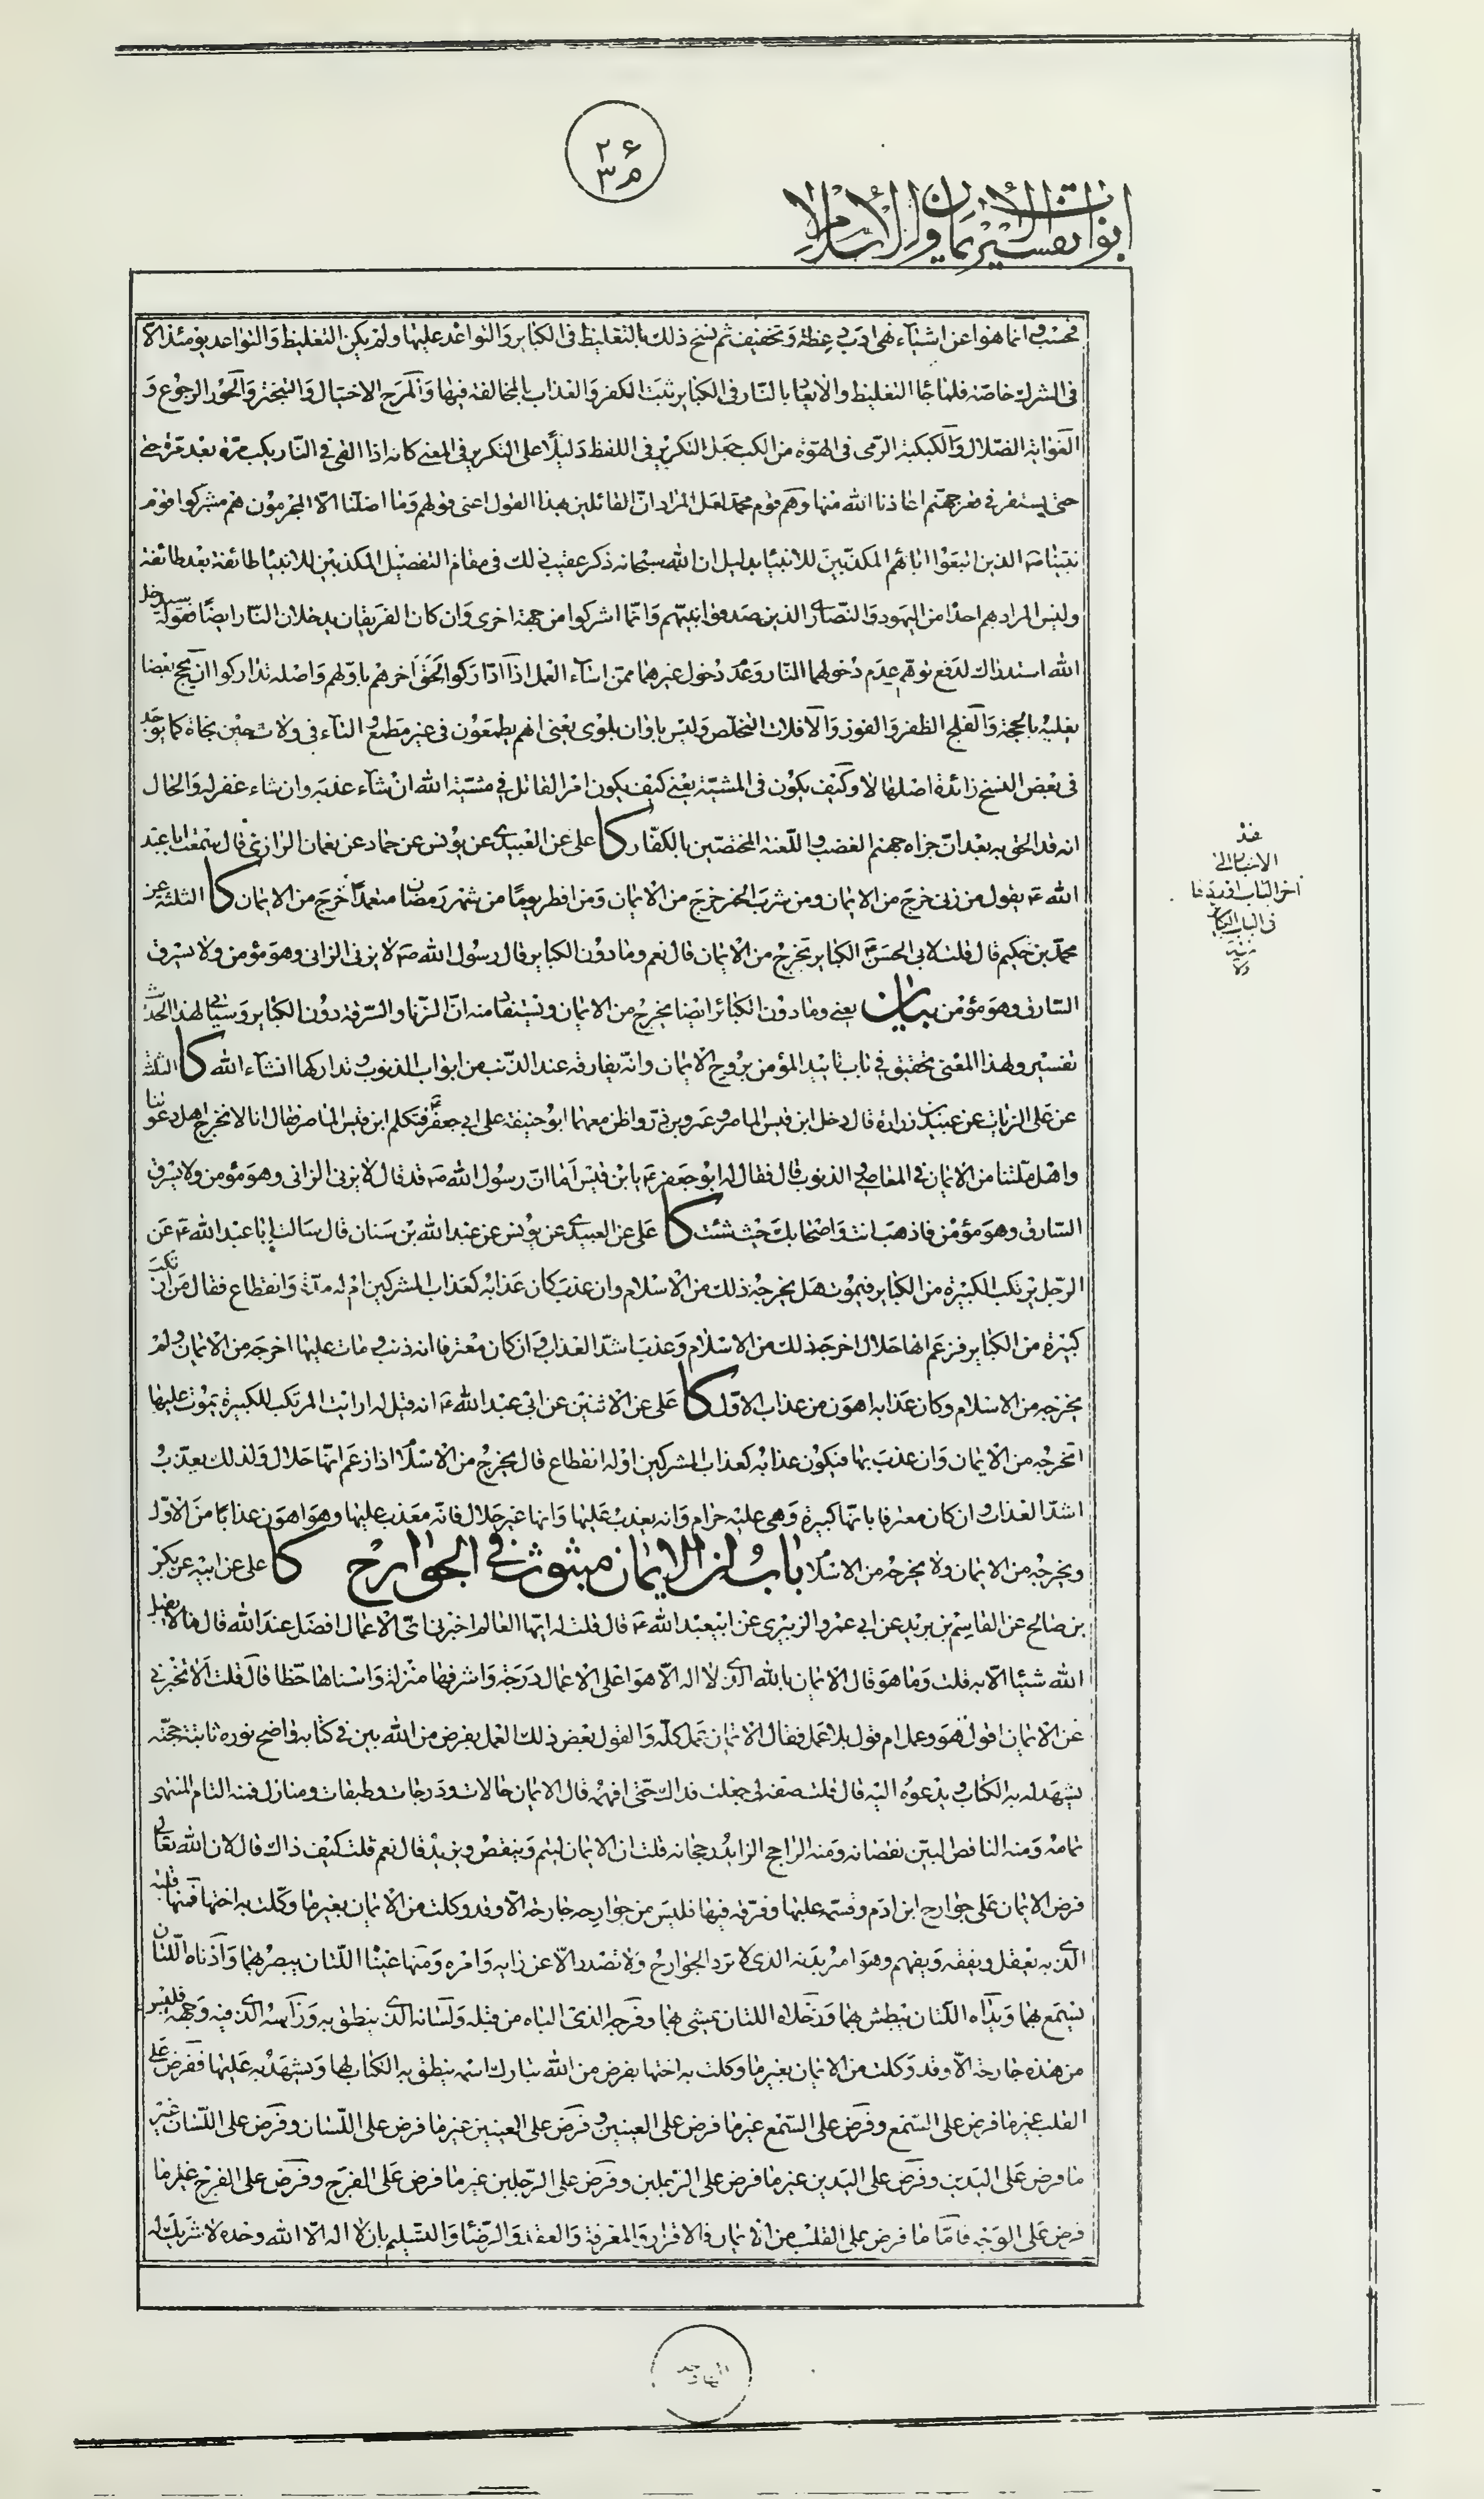 ٢٦
٣
ابواب تفسير الايمان والاسلام
فحسب وانما هو اعن اشياء هى ادب عظة وتخفيف ثم نسخ ذلك بالتغليظ فى الكباير والتواعد عليها ولم يكن التغليظ والتواعد يومئذ الا
فى الشرك خاصة فلما جاء التغليظ والايعاد بالنار فى الكباير ثبت الكفر والعذاب بالمخالفة فيها والمرح الاختيال والتبختر والحور الرجوع و
الغواية الضلال والكبكبة الرمى فى الهوة من الكب جعل التكرير فى اللفظ دليلا على التكرير فى المعنى كانه اذا القى فى النار يكب مرة بعد مرة حتى
حتى يستقر فى قعر جهنم اعاذنا الله منها وهم قوم محمد لعل المراد ان القائلين بهذا القول اعنى قولهم وما اضلنا الا المجرمون هم مشركوا قوم
نبينا ص الذين اتبعوا اباءهم المكذبين للانبياء بدليل ان الله سبحانه ذكر عقيب ذلك فى مقام التفصيل المكذبين للانبياء طائفة بعد طائفة
وليس المراد هم احدا من اليهود والنصارى الذين صدقوا نبيهم وانما اشركوا من جهة اخرى وان كان الفريقان يدخلان النار ايضا فقوله سيدخل
الله استدراك لدفع توهم عدم دخولهما النار وعدم دخول غيرهما ممن اساء العمل اذا اداركوا لحق اخرهم باولهم واصله تداركوا ان يحج بعضا
بغلبه بالحجة والفلج الظفر والفوز والافلات التخلص وليس باوان بلوى يعنى انهم يطمعون فى غير مطمع التاء فى ولات حين نجاة كما يوجد
فى بعض النسخ زائدة اصلها لا وكيف يكون فى المشية يعنى كيف يكون امر القاتل فى مشية الله ان شاء عذبه وان شاء غفر له والحال
انه قد الحق به بعد ان جزاه جهنم الغضب واللعنة المختصين بالكفار كا على عن العبيدى عن يونس عن حماد عن نعمان الرازى قال سمعت ابا عبد
الله ع يقول من زنى خرج من الايمان ومن شرب الخمر خرج من الايمان ومن افطر يوما من شهر رمضان متعمدا خرج من الايمان كا الثلثة عن
محمد بن حكيم قال قلت لابى الحسن ع الكباير تخرج من الايمان قال نعم وما دون الكباير قال رسول الله ص لا يزنى الزانى وهو مؤمن ولا يسرق
السارق وهو مؤمن بيان يعنى وما دون الكبائر ايضا يخرج من الايمان ويستفاد منه ان الزنا والسرقة دون الكباير وسياتى لهذا الحديث
تفسير ولهذا المعنى تحقيق فى باب تاييد المؤمن بروح الايمان وانه يفارقه عند الذنب من ابواب الذنوب وتداركها انشاء الله كا الثلثة
عن على الزيات عن عبيد بن زرارة قال دخل ابن قيس الماصر وعمرو بن ذر واظن معهما ابو حنيفة على ابى جعفر ع فتكلم ابن قيس الماصر فقال انا لا نخرج اهل دعوتنا
واهل ملتنا من الايمان فى المعاصى والذنوب قال فقال له ابو جعفر ع يا بن قيس اما ان رسول الله ص قد قال لا يزنى الزانى وهو مؤمن ولا يسرق
السارق وهو مؤمن فاذهب انت واصحابك حيث شئت كا على عن العبيدى عن يونس عن عبد الله بن سنان قال سالت ابا عبد الله ع عن
الرجل يرتكب الكبيرة من الكباير فيموت هل يخرجه ذلك من الاسلام وان عذب كان عذابه كعذاب المشركين ام له مدة وانقطاع فقال من ارتكب
كبيرة من الكباير فزعم انها حلال اخرجه ذلك من الاسلام وعذب اشد العذاب وان كان معترفا انه ذنب ومات عليها اخرجه من الايمان ولم
يخرجه من الاسلام وكان عذابه اهون من عذاب الاول كا على عن الاثنين عن ابى عبد الله ع انه قيل له ارايت المرتكب للكبيرة يموت عليها
اتخرجه من الايمان وان عذب بها فيكون عذابه كعذاب المشركين او له انقطاع قال يخرج من الاسلام اذا زعم انها حلال ولذلك يعذب
اشد العذاب وان كان معترفا بانها كبيرة وهى عليه حرام وانه يعذب عليها وانها غير حلال فانه معذب عليها وهو اهون عذابا من الاول
ويخرجه من الايمان ولا يخرجه من الاسلام باب ان الايمان مبثوث فى الجوارح كا على عن ابيه عن بكر
بن صالح عن القاسم بن بريد عن ابى عمرو الزبيرى عن ابيعبد الله ع قال قلت له ايها العالم اخبرنى اى الاعمال افضل عند الله قال ما لا يقبل
الله شيئا الا به قلت وما هو قال الايمان بالله الذى لا اله الا هو اعلى الاعمال درجة واشرفها منزلة واسناها حظا قال قلت الا تخبرنى
عن الايمان اقول هو وعمل ام قول بلا عمل فقال الايمان عمل كله والقول بعض ذلك العمل بفرض من الله بين فى كتابه واضح نوره ثابتة حجته
يشهد له به الكتاب ويدعوه اليه قال قلت صفه لى جعلت فداك حتى افهمه قال الايمان حالات ودرجات وطبقات ومنازل فمنه التام المنتهى
تمامه ومنه الناقص البين نقصانه ومنه الراجح الزايد رجحانه قلت ان الايمان ليتم وينقص ويزيد قال نعم قلت كيف ذاك قال لان الله تعالى
فرض الايمان على جوارح ابن ادم وقسمه عليها وفرقه فيها فليس من جوارحه جارحة الا وقد وكلت من الايمان بغير ما وكلت به اختها فمنها قلبه
الذى به يعقل ويفقه ويفهم وهو امير بدنه الذى لا ترد الجوارح ولا تصدر الا عن رايه وامره ومنها عينا اللتان يبصر بهما واذناه اللتان
يستمع بهما ويداه اللتان يبطش بهما ورجلاه اللتان يمشى بهما وفرجه الذى الباه من قبله ولسانه الذى ينطق به وراسه الذى فيه وجهه فليس
من هذه جارحة الا وقد وكلت من الايمان بغير ما وكلت به اختها بفرض من الله تبارك اسمه ينطق به الكتاب لها ويشهد به عليها ففرض على
القلب غير ما فرض على السمع وفرض على السمع غير ما فرض على العينين وفرض على العينين غير ما فرض على اللسان وفرض على اللسان غير
ما فرض على اليدين وفرض على اليدين غير ما فرض على الرجلين وفرض على الرجلين غير ما فرض على الفرج وفرض على الفرج غير ما
فرض على الوجه فاما ما فرض على القلب من الايمان فالاقرار والمعرفة والعقد والرضا والتسليم بان لا اله الا الله وحده لا شريك له
الاخبار الى
اخر الباب
فى الباب